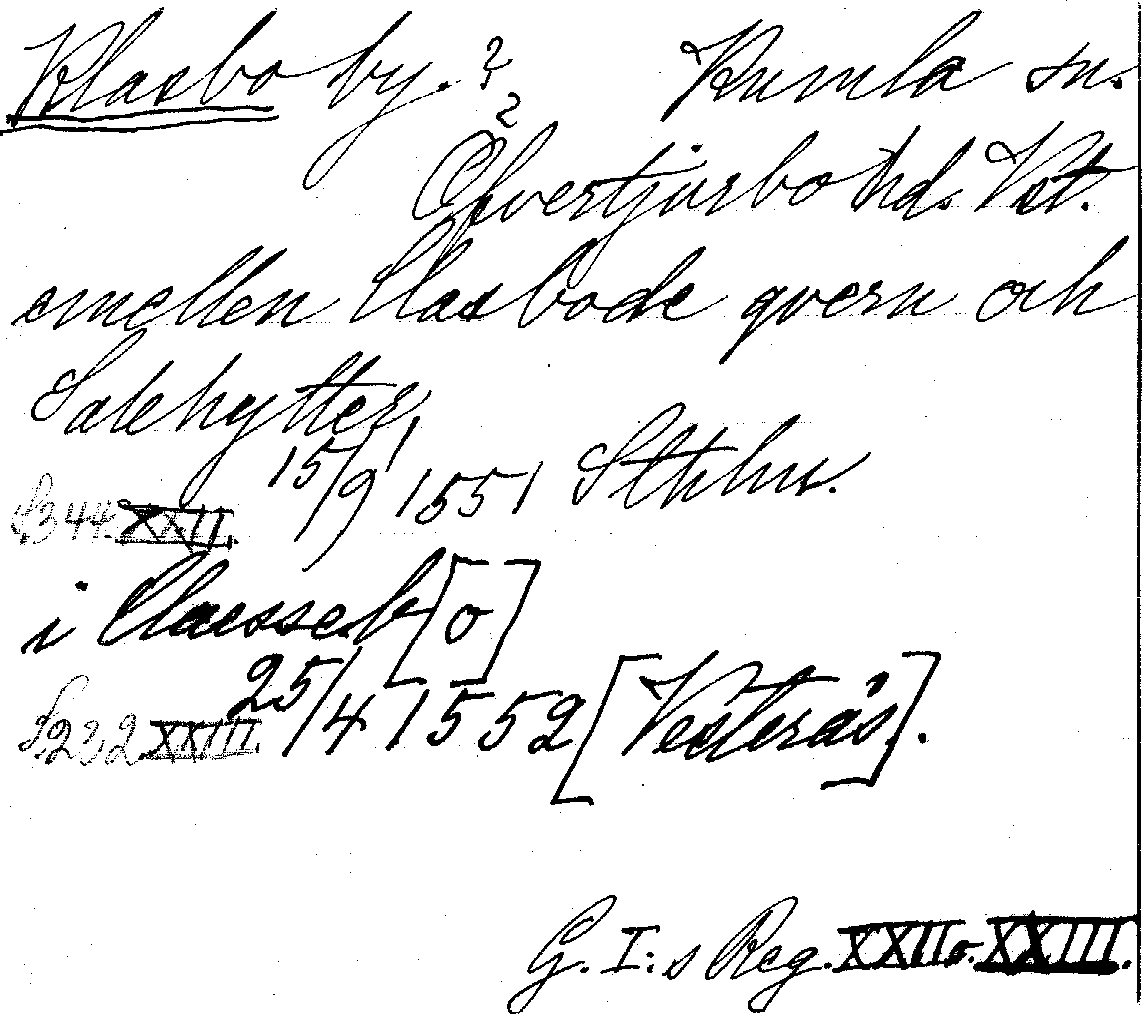 Klasbo by. ? Kumla sn.
2 Öfvertjurbo hd. Vst.
emellen Clasbode qvern och
Salehytter,
S. 344. XXII. 15/9 1551 Sthlm.
i Claesseb[o]
S. 232 XXIII. 25/4 1552 [Vesterås].
G. I:s Reg. XXII o. XXIII.